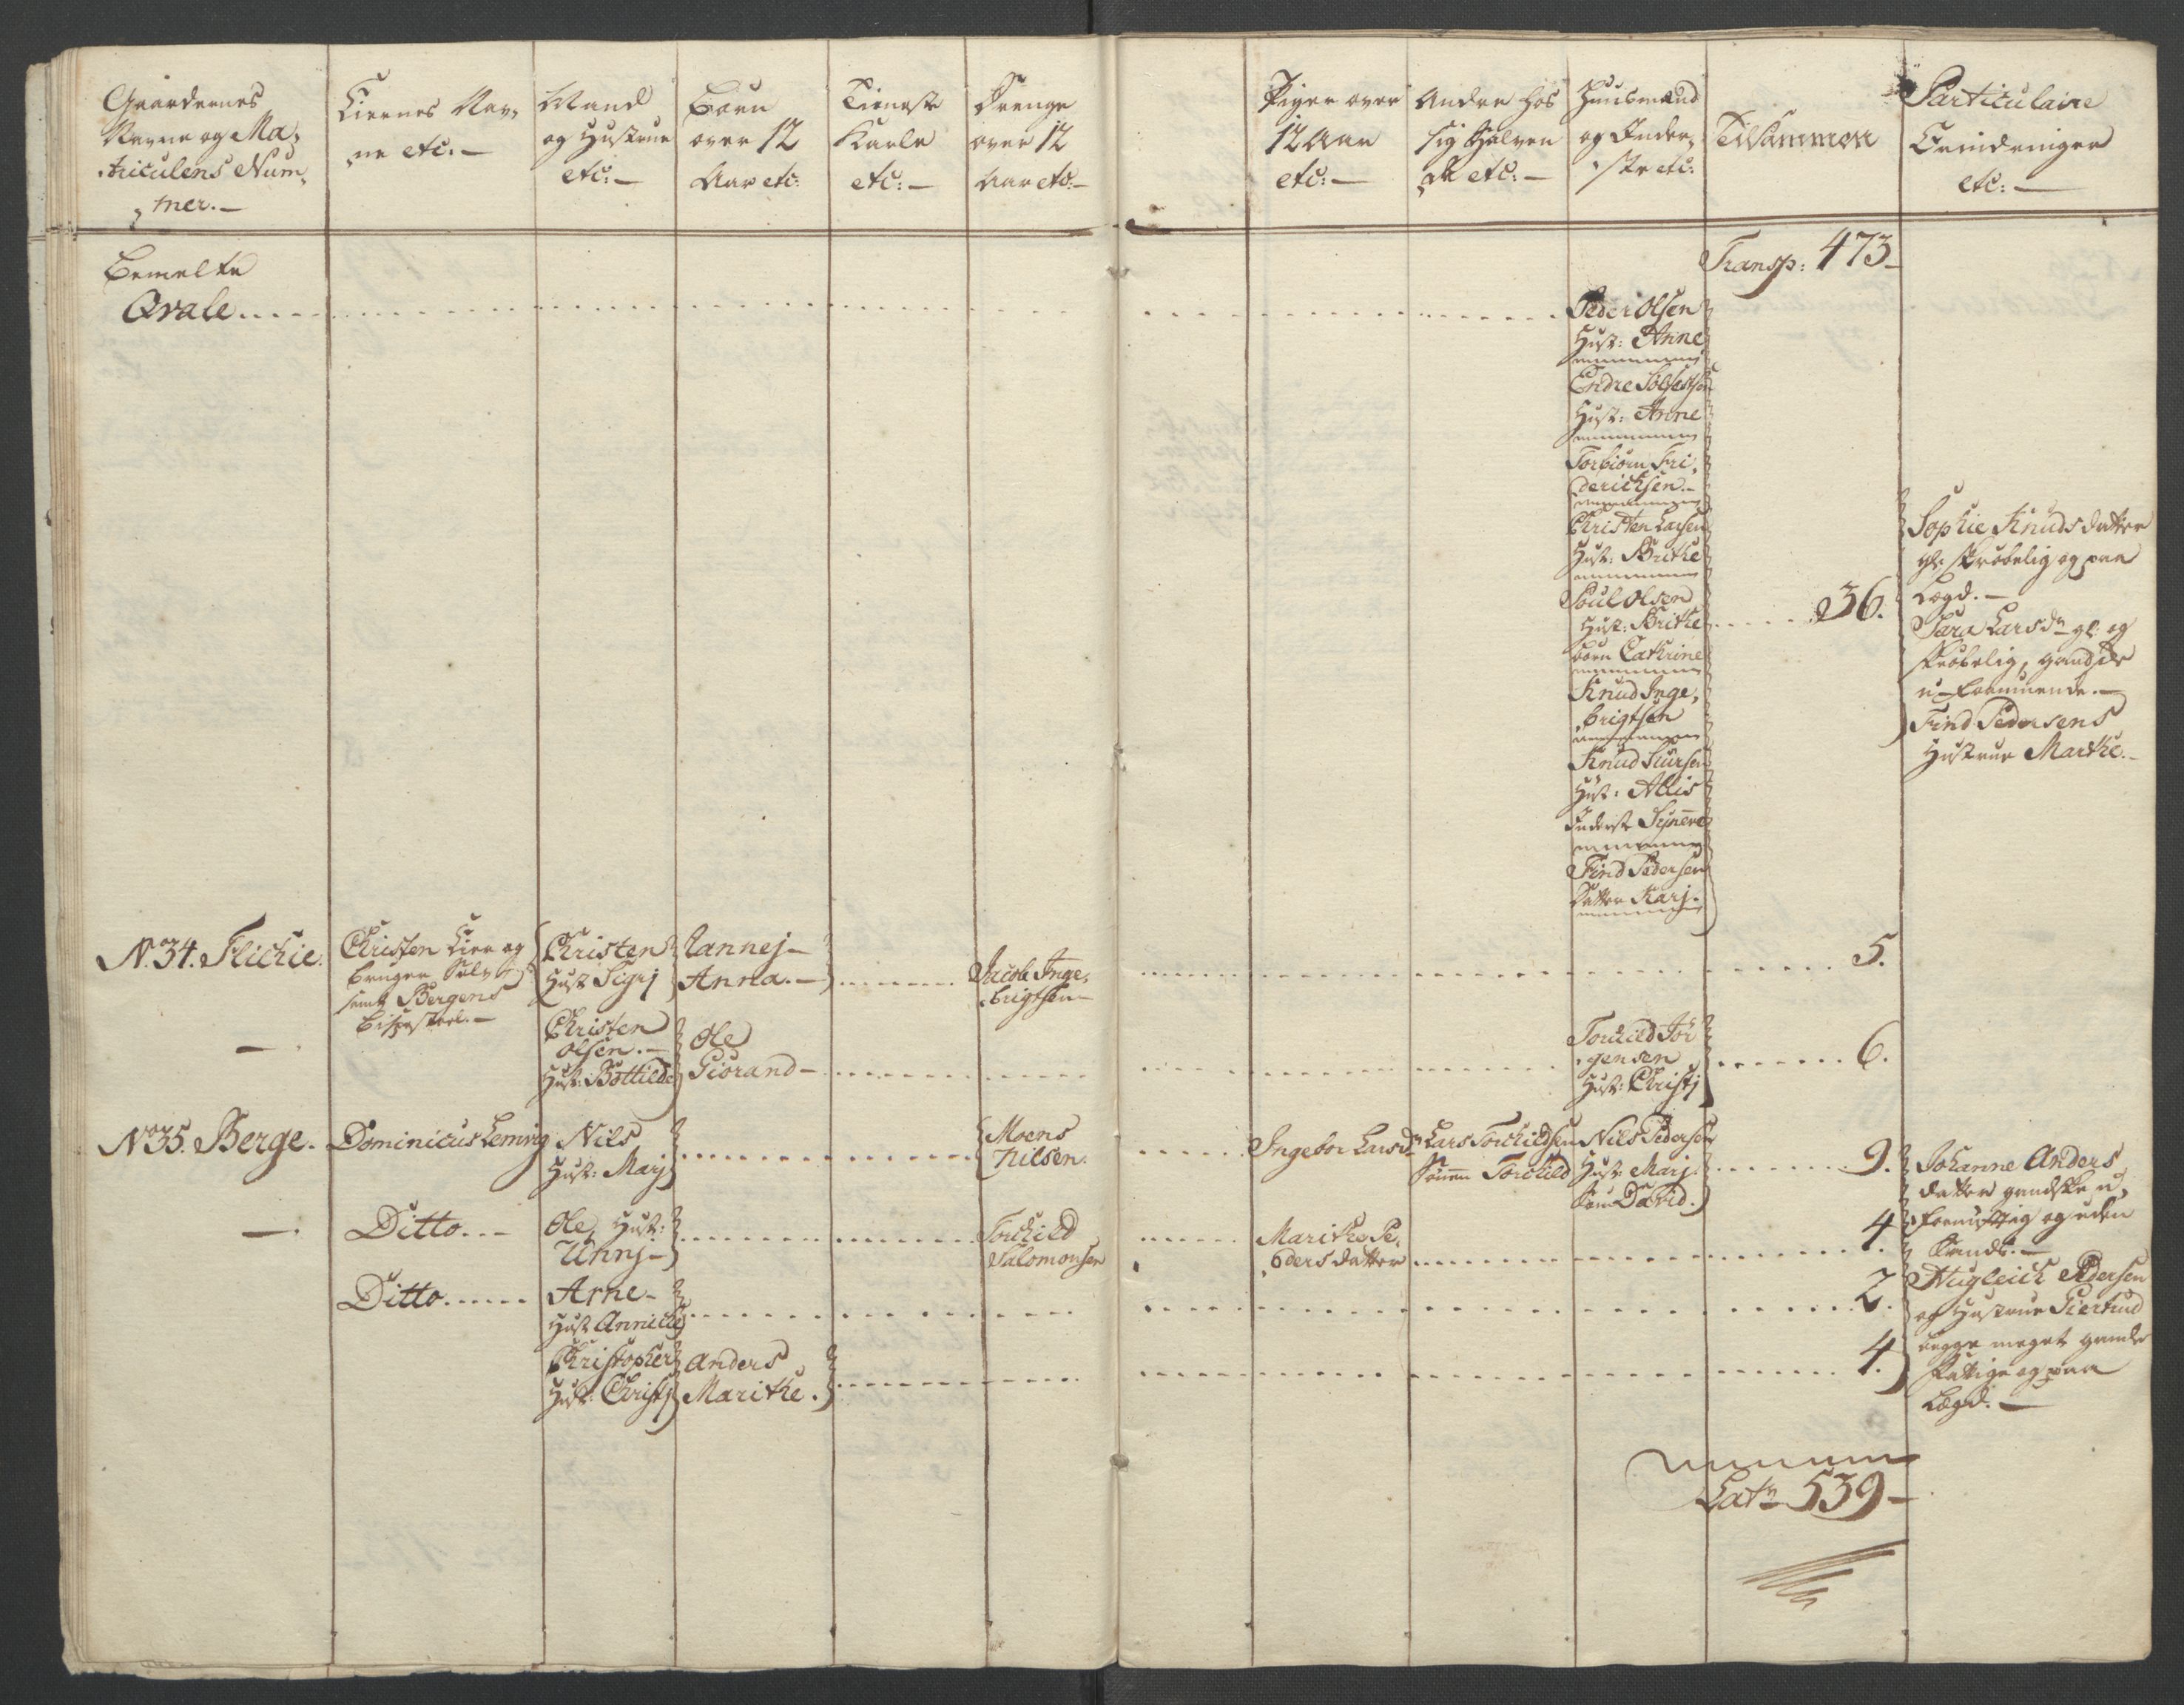 Gaardernes
Navne og Ma-
triculens Num-
mer.—
Eiernes Nav-
ne etc.—
Mand
og Hustrue
etc:—
Børn
over 12
Aar etc:
Tieneste
Karle
etc:—
Drenge
over 12
Aar etc:—
Piger over
12 Aar
etc:—
Andre hos
sig Selven
de etc:—
Huusmænd
og Inder-
ste etc:
Tilsammen
Particulaire
Erindringer
etc:—
Bemelte
Qvale
Transp: 473—
Peder Olsen
Hust: Anne
Endre
Hust: Anne
Torbiørn Fri-
derichsen.—
Christen Larsen
Hust: Brithe
Poul Olsen
Hust: Brithe
børn Cathrine
Knud Inge-
brigtsen
Knud
Hust: Allis
Inderste Synneve
Find Pedersen
Datter Karj.
36.
Sophie Knudsdatter
gl: skrøbelig og paa
Lægd.—
Sara Larsdr gl: og
skrøbelig, gandske
u-formuende.—
Find Pedersens
Hustrue Marthe.—
No 34. Flichie.
Christen Eier og
bruger Selv
samt Bergens
Bispestoel.—
Christen
Hust Sigrj
Rannej—
Anna.—
Jacob Inge-
brigtsen—
5.
—
Christen
Olsen.—
Hust: Bottilde
Ole
Giørand—
Torchild Jør
gensen
Hust: Christj
6.
No 35. Berge.
Dominicus Lemvig
Nils
Hust: Marj
Moens
Nilsen.
Ingebor Larsdr
Lars Torchildsen
Sønnen Torchild
Nils Pedersen
Hust: Marj
Søn David.
9.
Johanne Anders
datter gandske u-
fornuftig og uden
Forstand.—
—.
Ditto.
Ole, Hust:
Unnj—
Torchild
Salomonsen
Marithe Pe-
dersdatter
4.
Ditto.
Arne—
Hust Anniche
2.
Pedersen
og Hustrue Giertrud
begge meget gamle
fattige og paa
Lægd.—
Christopher
Hust: Christj
Anders
Marithe.
4.
Lat: 539—